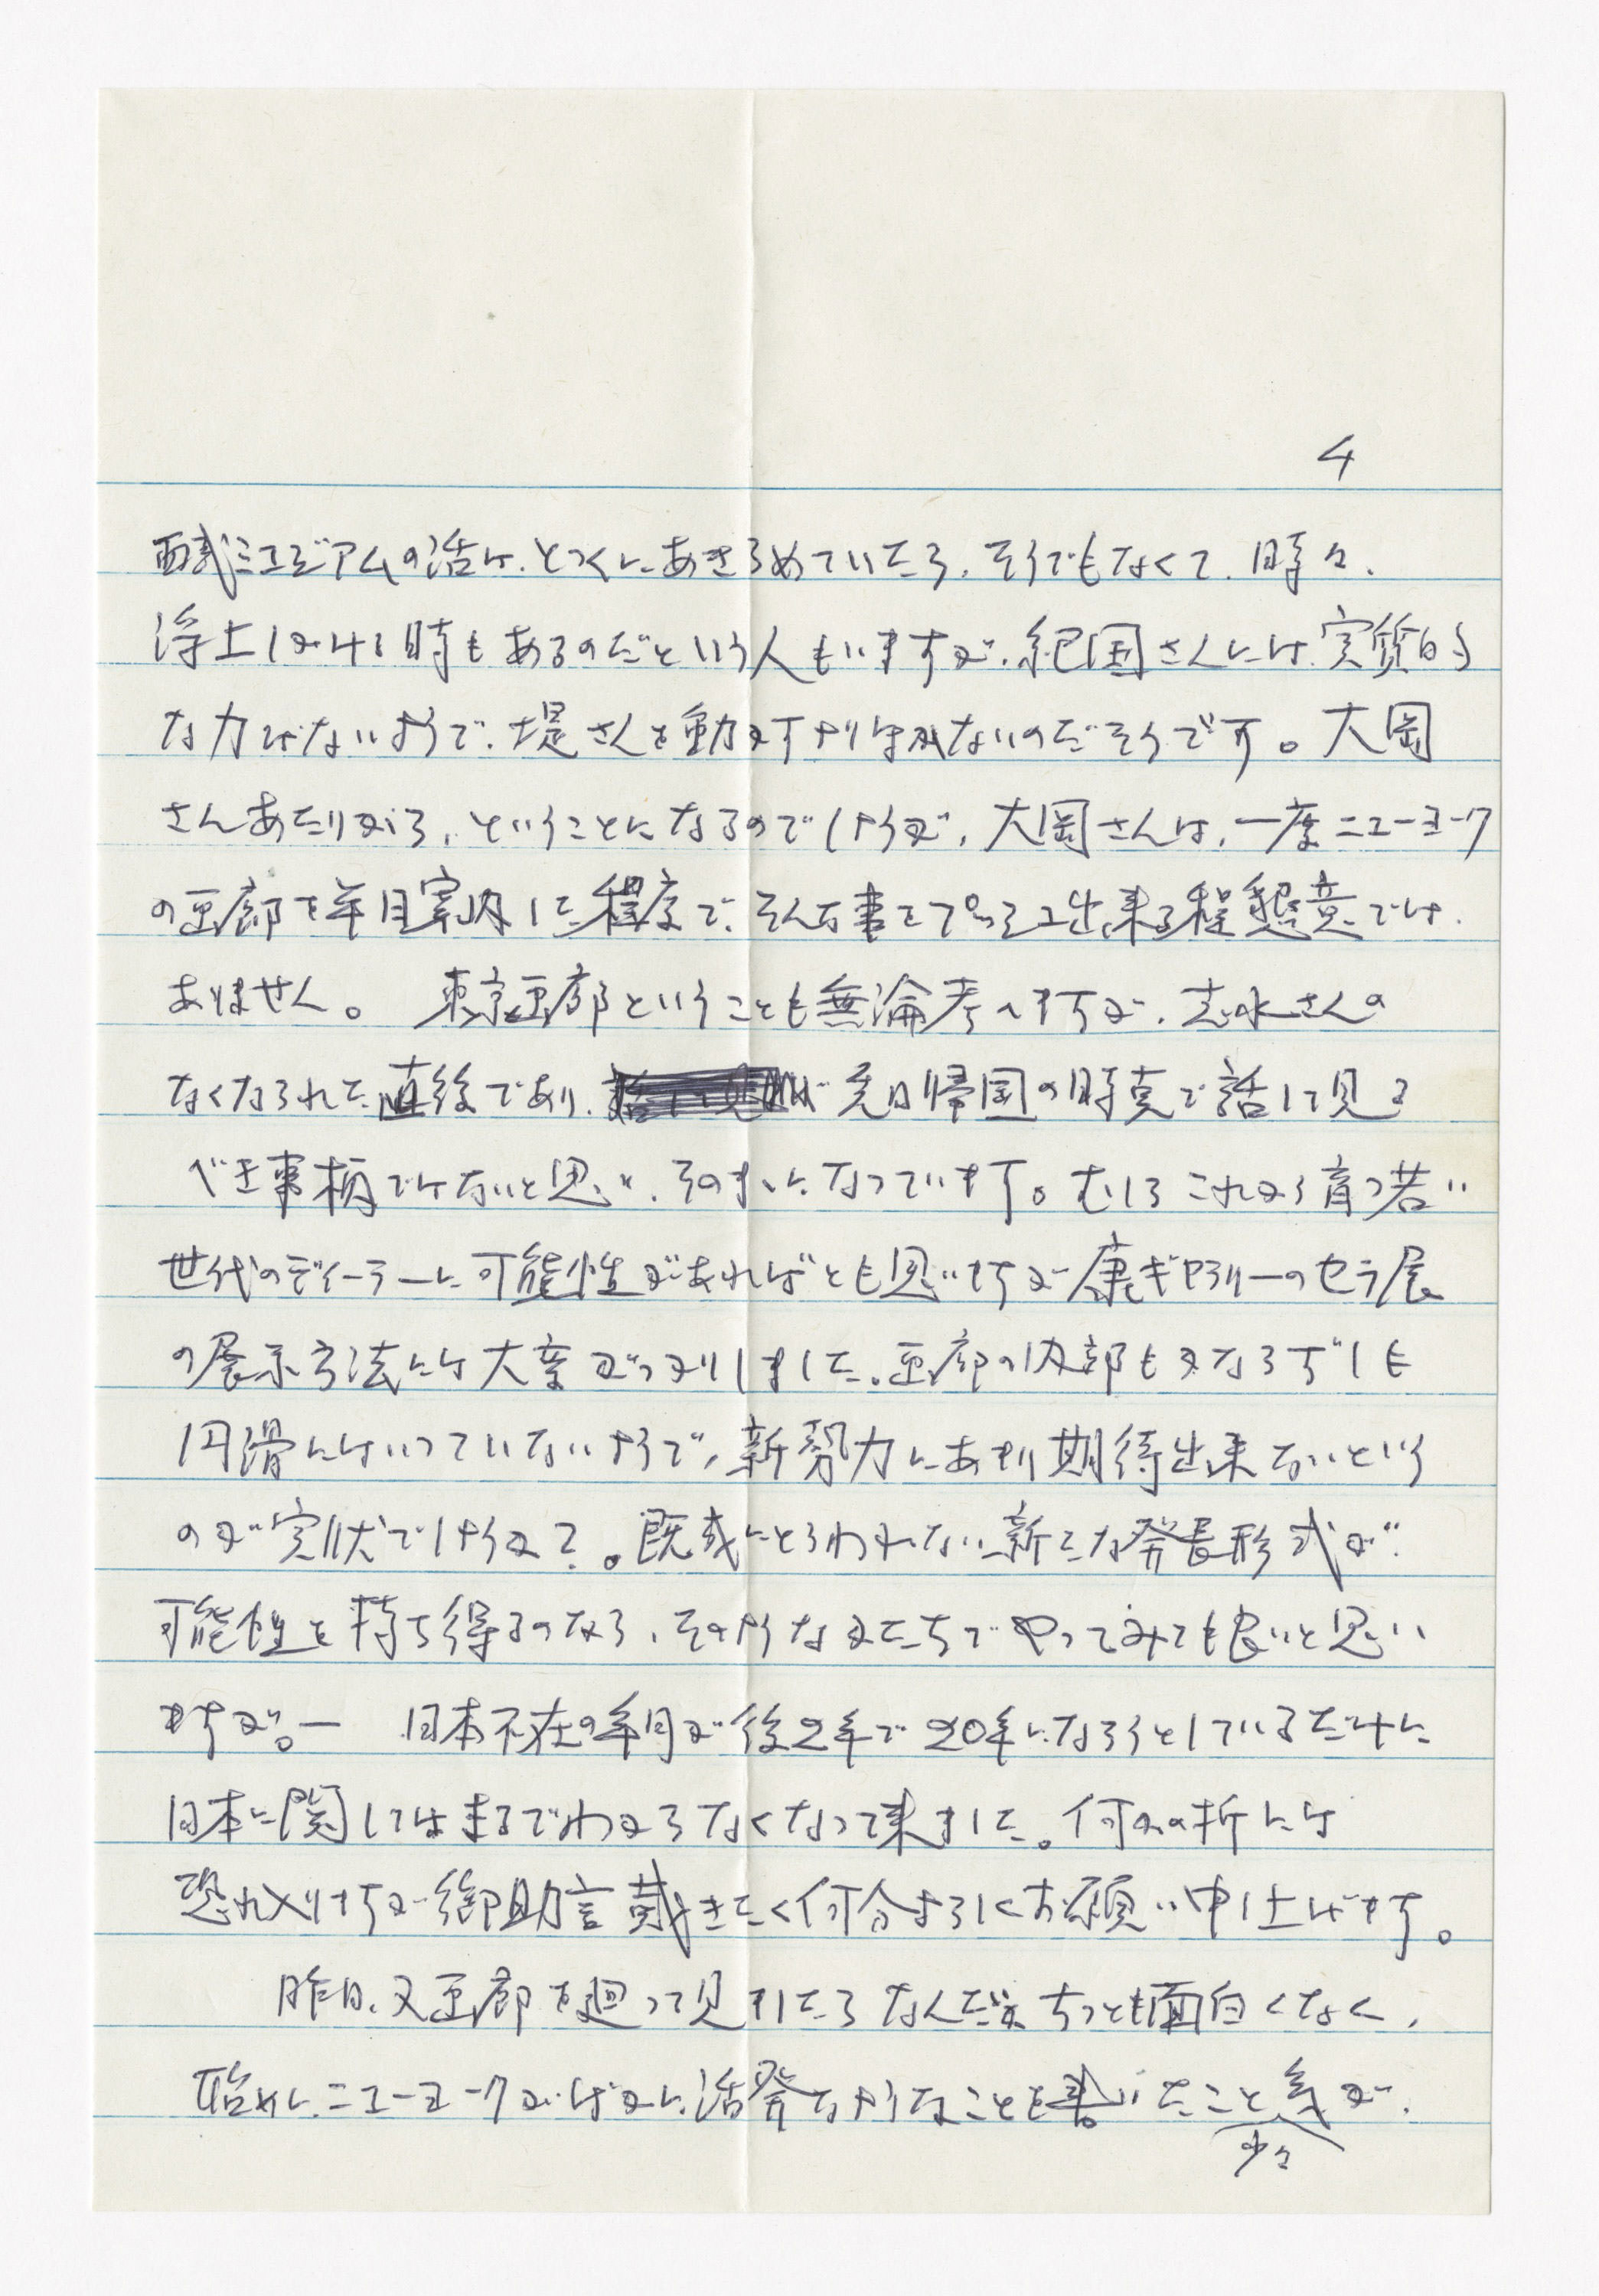 4
西武ミュージアムの話は、とっくにあきらめていたら、そうでもなくて、時々、
浮上しかける時もあるのだという人もいますが、紀国さんには、実質的
な力がないようで、堤さんを動かすよりほかないのだそうです。大岡
さんあたりから、ということになるのでしょうが、大岡さんは、一度ニューヨーク
の画廊を案内した程度で、そんな事をプッシュ出来る程懇意では
ありません。 東京画廊ということも無論考へますが、志水さんの
なくなられた直後であり、先日帰国の時点で話して見る
べき事柄ではないと思い、そのままになっています。むしろこれから育つ若い
世代のディーラーに可能性があればとも思いますが康ギャラリーのセラ展
の展示方法には大変がっかりしました。画廊の内部もかならずしも
円滑にはいっていないようで、新勢力にあまり期待出来ないという
のが実状でしょうか?。既成にとらわれない新たな発表形式が
可能性を持ち得るのなら、そのようなかたちでやってみても良いと思い
ますが。― 日本不在の年月が後2年で20年になろうとしているだけに
日本に関してはまるでわからなくなって来ました。何かの折には
恐れ入りますが御助言戴きたく何分よろしくお願い申し上げます。
昨日、又画廊を廻って見ましたらなんだかちっとも面白くなく、
始めに、ニューヨークがばかに活発なようなことを書いたこと少々気が、